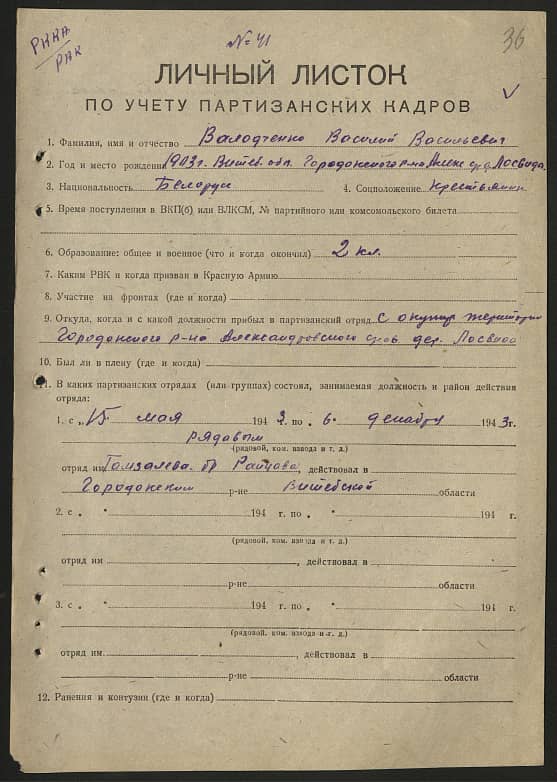 РККА
РАК
№ 41
36
ЛИЧНЫЙ ЛИСТОК
ПО УЧЕТУ ПАРТИЗАНСКИХ КАДРОВ
1. Фамилия, имя и отчество Валодченко Василий Васильевич
2. Год и место рождения 1903г. Витеб. обл. Городокского р-на Алекс с/с д. Лосвида.
3. Национальность Белорус 4. Соцположение Крестьянин
5. Время поступления в ВКП(б) или ВЛКСМ, № партийного или комсомольского билета
6. Образование: общее и военное (что и когда окончил) 2 кл.
7. Каким РВК и когда призван в Красную Армию
8. Участие на фронтах (где и когда)
9. Откуда, когда и с какой должности прибыл в партизанский отряд с оккупир территории
Городокского р-на Александровского дер. Лосвида
10. Был ли в плену (где и когда)
11. В каких партизанских отрядах (или группах) состоял, занимаемая должность и район действия
отряда:
1. с „15 мая 1943 г. по „6. декабря 1943 г.
рядовым
(рядовой, ком. взвода и т. д.)
отряд им , действовал в
Городокском р-не Витебской области
2. с „ " 194 г. по „ " 194 г.
(рядовой, ком. взвода и т. д.)
отряд им , действовал в
р-не области
3. с „ " 194 г. по „ " 194 г.
(рядовой, ком. взвода и т. д.)
отряд им. , действовал в
р-не области
12. Ранения и контузии (где и когда)